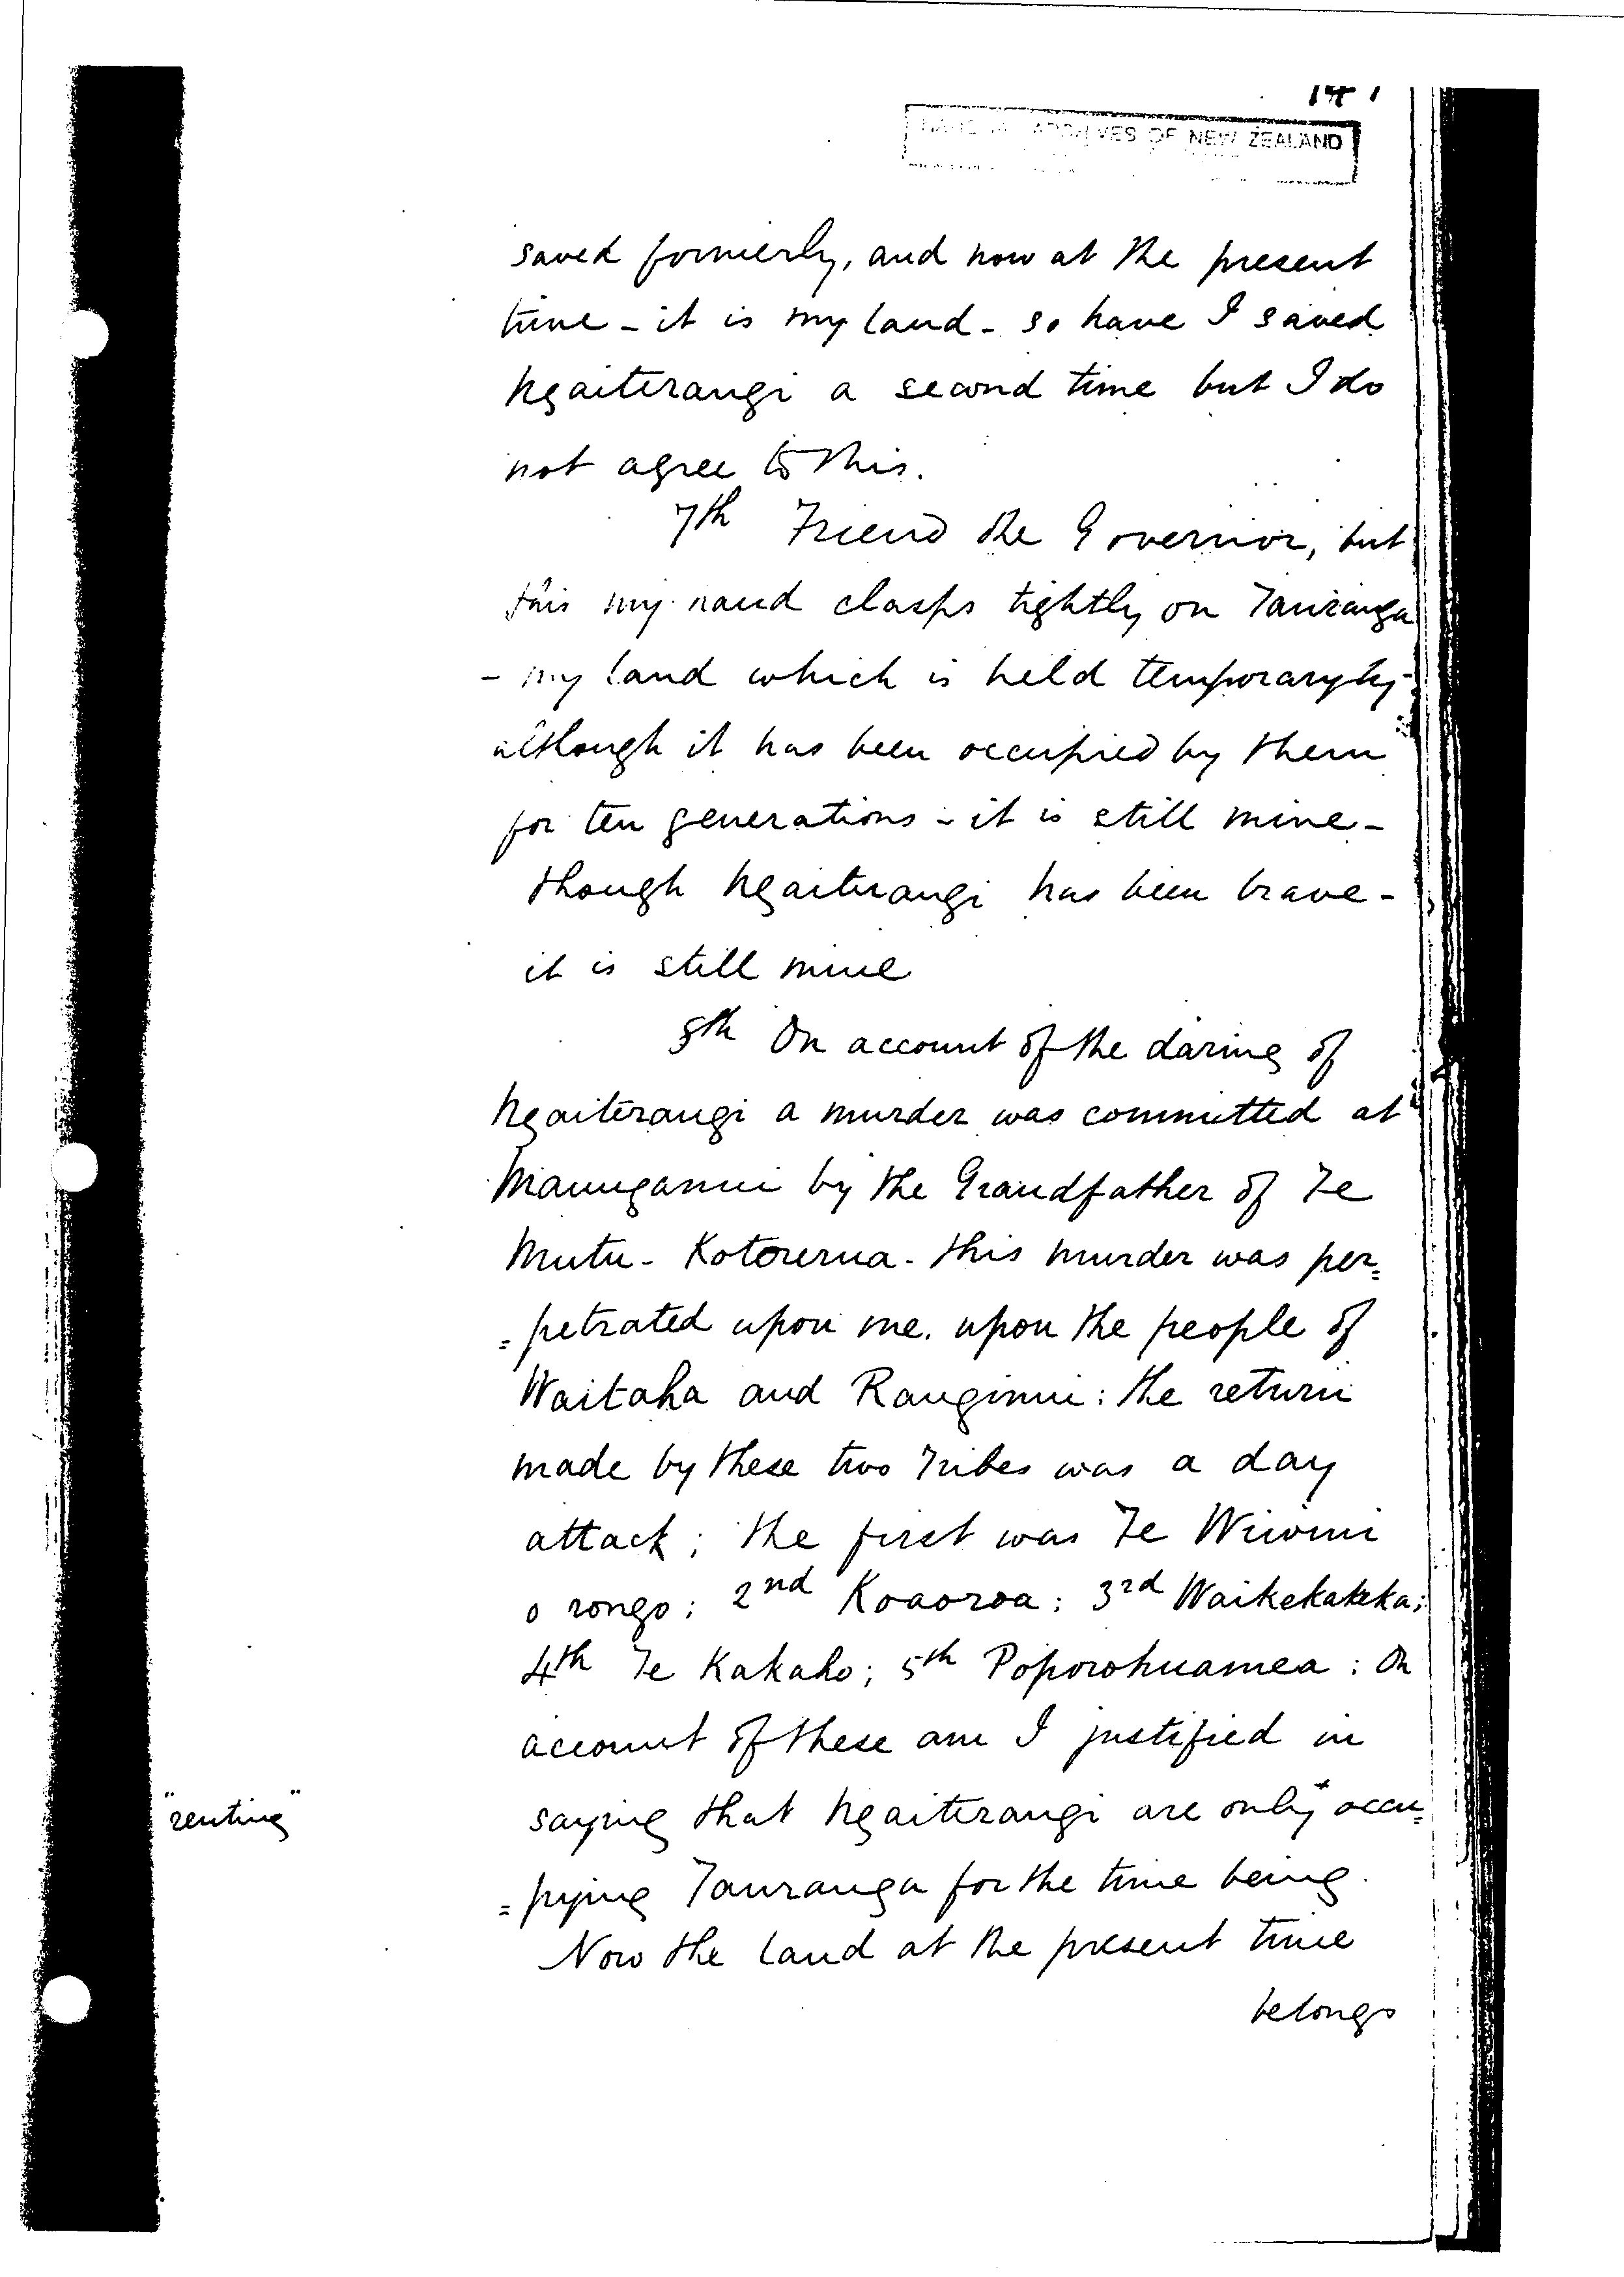 ARCHIVES OF NEW ZEALAND
saved formerly, and now at the present
time - it is my land - so have I saved
Ngaiterangi a second time but I do
not agree to this.
7th Friend the Governor, but
this my hand clasps tightly on Tauranga
- my land which is held temporaryly -
although it has been occupied by them
for ten generations - it is still mine -
though Ngaiterangi has been brave -
it is still mine
8th On account of the daring of
Ngaiterangi a murder was committed at
Maunganui by the Grandfather of Te
Mutu - Kotorerua - this murder was per=
=petrated upon me. upon the people of
Waitaha and Ranginui: the return
made by these two Tribes was a day
attack; the first was Te Wiwini
o rongo; 2nd Koaoroa: 3rd Waikekakeka;
4th Te Kakaho; 5th Poporohuamea: On
account of these am I justified in
"renting"
saying that Ngaiterangi are only + occu=
=pying Tauranga for the time being.
Now the land at the present time
belongs